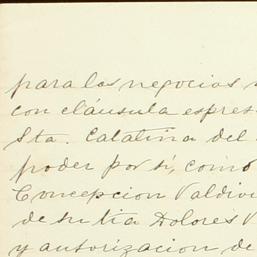 para los negocios
con cláusula espres
Sta. Catalina del
poder por sí, como
Concepcion Valdivi
de su tia Dolores V
y autorizacion de